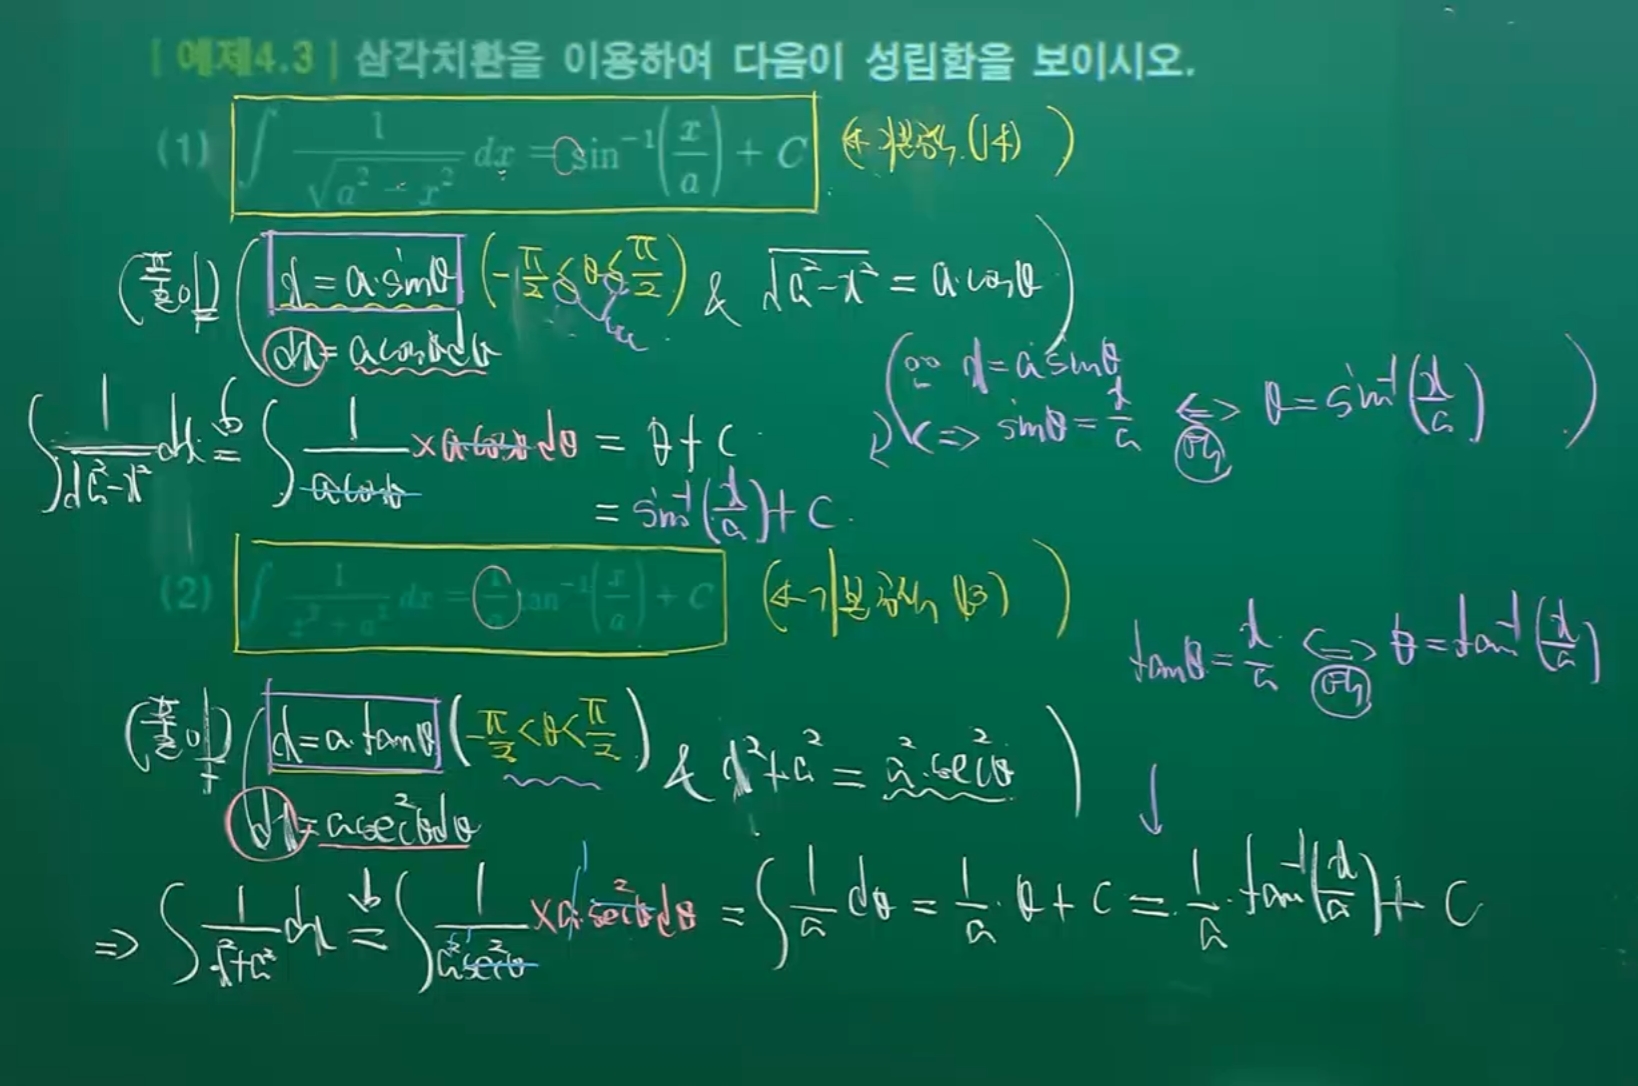 | 예제4.3 | 삼각치환을 이용하여 다음이 성립함을 보이시오.
(1) ∫ 1/√(a² - x²) dx = sin⁻¹(x/a) + C (← 기본공식 (14) )
(x = a·sinθ (-π/2 < θ < π/2) & √(a²-x²) = a·cosθ)
dx = a cosθ dθ
(∵ x = a sinθ
<=> sinθ = x/a <=> θ = sin⁻¹(x/a) )
∫ 1/√(a²-x²) dx = ∫ 1/(a cosθ) × a·cosθ dθ = θ + C
= sin⁻¹(x/a) + C.
(2) ∫ 1/(x² + a²) dx = 1/a tan⁻¹(x/a) + C (← 기본공식 (13) )
tanθ = x/a <=> θ = tan⁻¹(x/a)
(x = a·tanθ (-π/2 < θ < π/2) & x²+a² = a²·sec²θ)
dx = a sec²θ dθ
=> ∫ 1/(x²+a²) dx = ∫ 1/(a² sec²θ) × a·sec²θ dθ = ∫ 1/a dθ = 1/a · θ + C = 1/a · tan⁻¹(x/a) + C